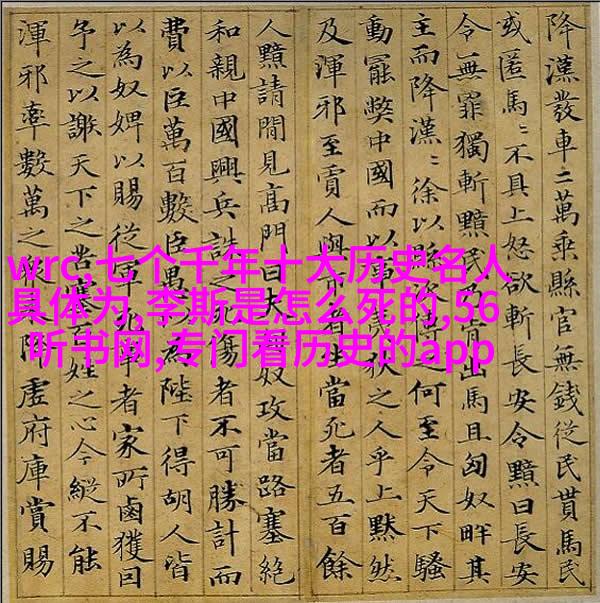 wrc,七个千年十大历史名人
具体为,李斯是怎么死的,56
听书网,专门看历史的app
降漢發車二萬乘縣官無錢從民貰馬民
或匿馬〻不具上怒欲斬長安令黯曰長安
令無罪獨斬黯民乃肯出馬且匈奴畔其
主而降漢〻徐以縣次傳之何至令天下騷
動罷弊中國而以事夷狄之人乎上黙然
及渾邪至賈人與市者坐當死者五百餘
人黯請間見高門曰夫匈奴攻當路塞絕
和親中國興兵誅之死傷者不可勝計而
費以巨萬百數臣愚以為陛下得胡人皆
以為奴婢以賜從軍死事者家所鹵獲因
予之以謝天下之苦塞百姓之心今縱不能
渾邪率數萬之降虛府庫賞賜